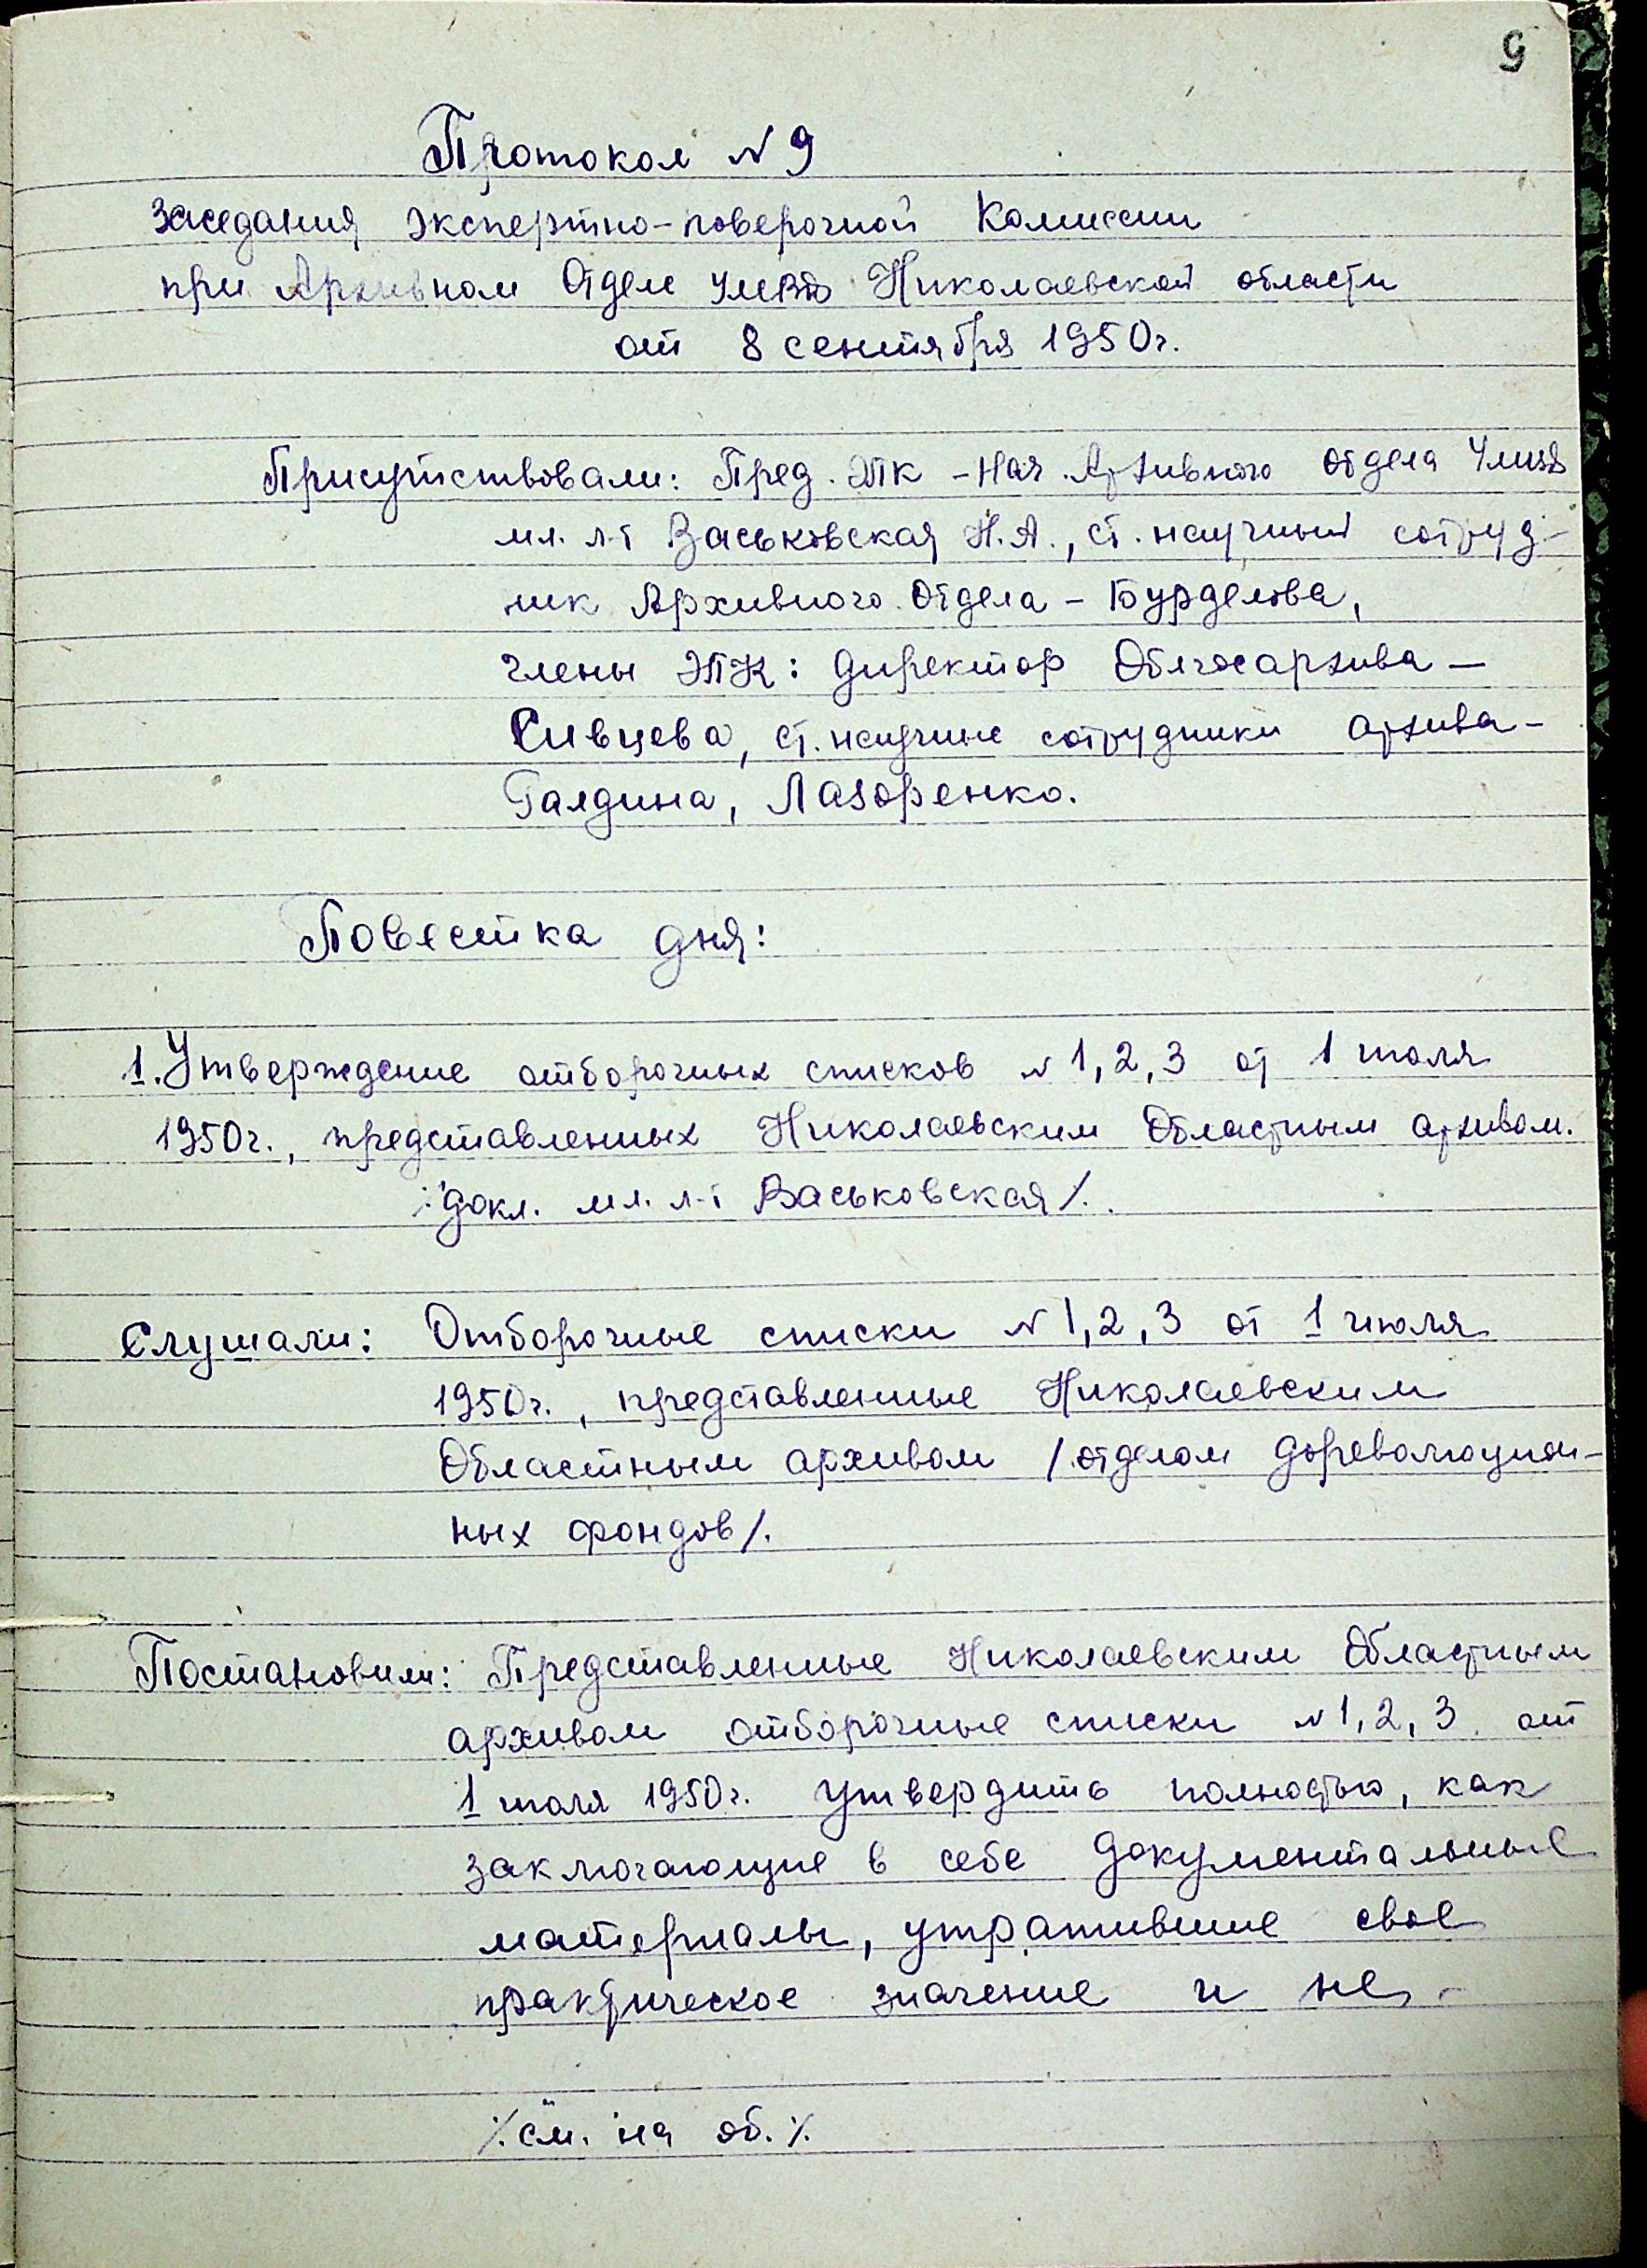 9
Протокол №9
заседания экспертно-поверочной Комиссии
при Архивном Отделе УМВД Николаевской области
от 8 сентября 1950г.
Присутствовали: Пред. ЭПК – Нач. Архивного отдела УМВД
мл. л-т Васьковская Н.А., ст. научный сотруд-
ник Архивного Отдела – Бурделова,
члены ЭПК: директор Облгосархива –
Сивцева, ст. научные сотрудники архива –
Галдина, Лазоренко.
Повестка дня:
1. Утверждение отборочных списков №1,2,3 от 1 июля
1950г., представленных Николаевским Областным архивом.
/докл. мл. л-т Васьковская/.
Слушали: Отборочные списки №1,2,3 от 1 июля
1950г., представленные Николаевским
Областным архивом /отделом дореволюцион-
ных фондов/.
Постановили: Представленные Николаевским Областным
архивом отборочные списки №1,2,3 от
1 июля 1950г. утвердить полностью, как
заключающие в себе документальные
материалы, утратившие свое
практическое значение и не
/см. на об./